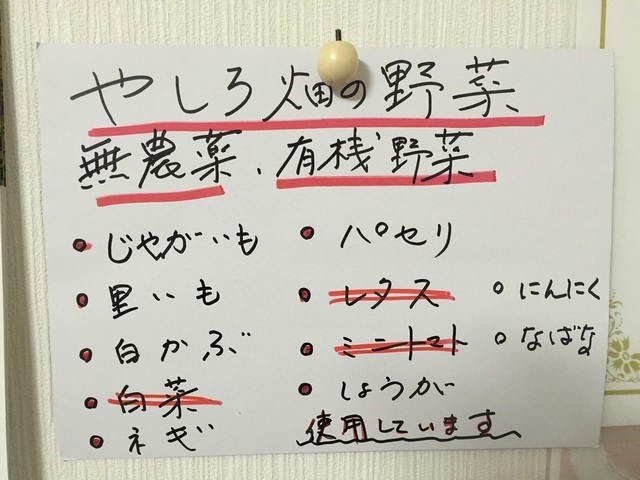 やしろ畑の野菜
無農薬、有機野菜
● じゃがいも
● 里いも
● 白かぶ
● 白菜
● ネギ
● パセリ
● レタス
● ミントマト
● しょうが
○ にんにく
○ なばな
使用しています